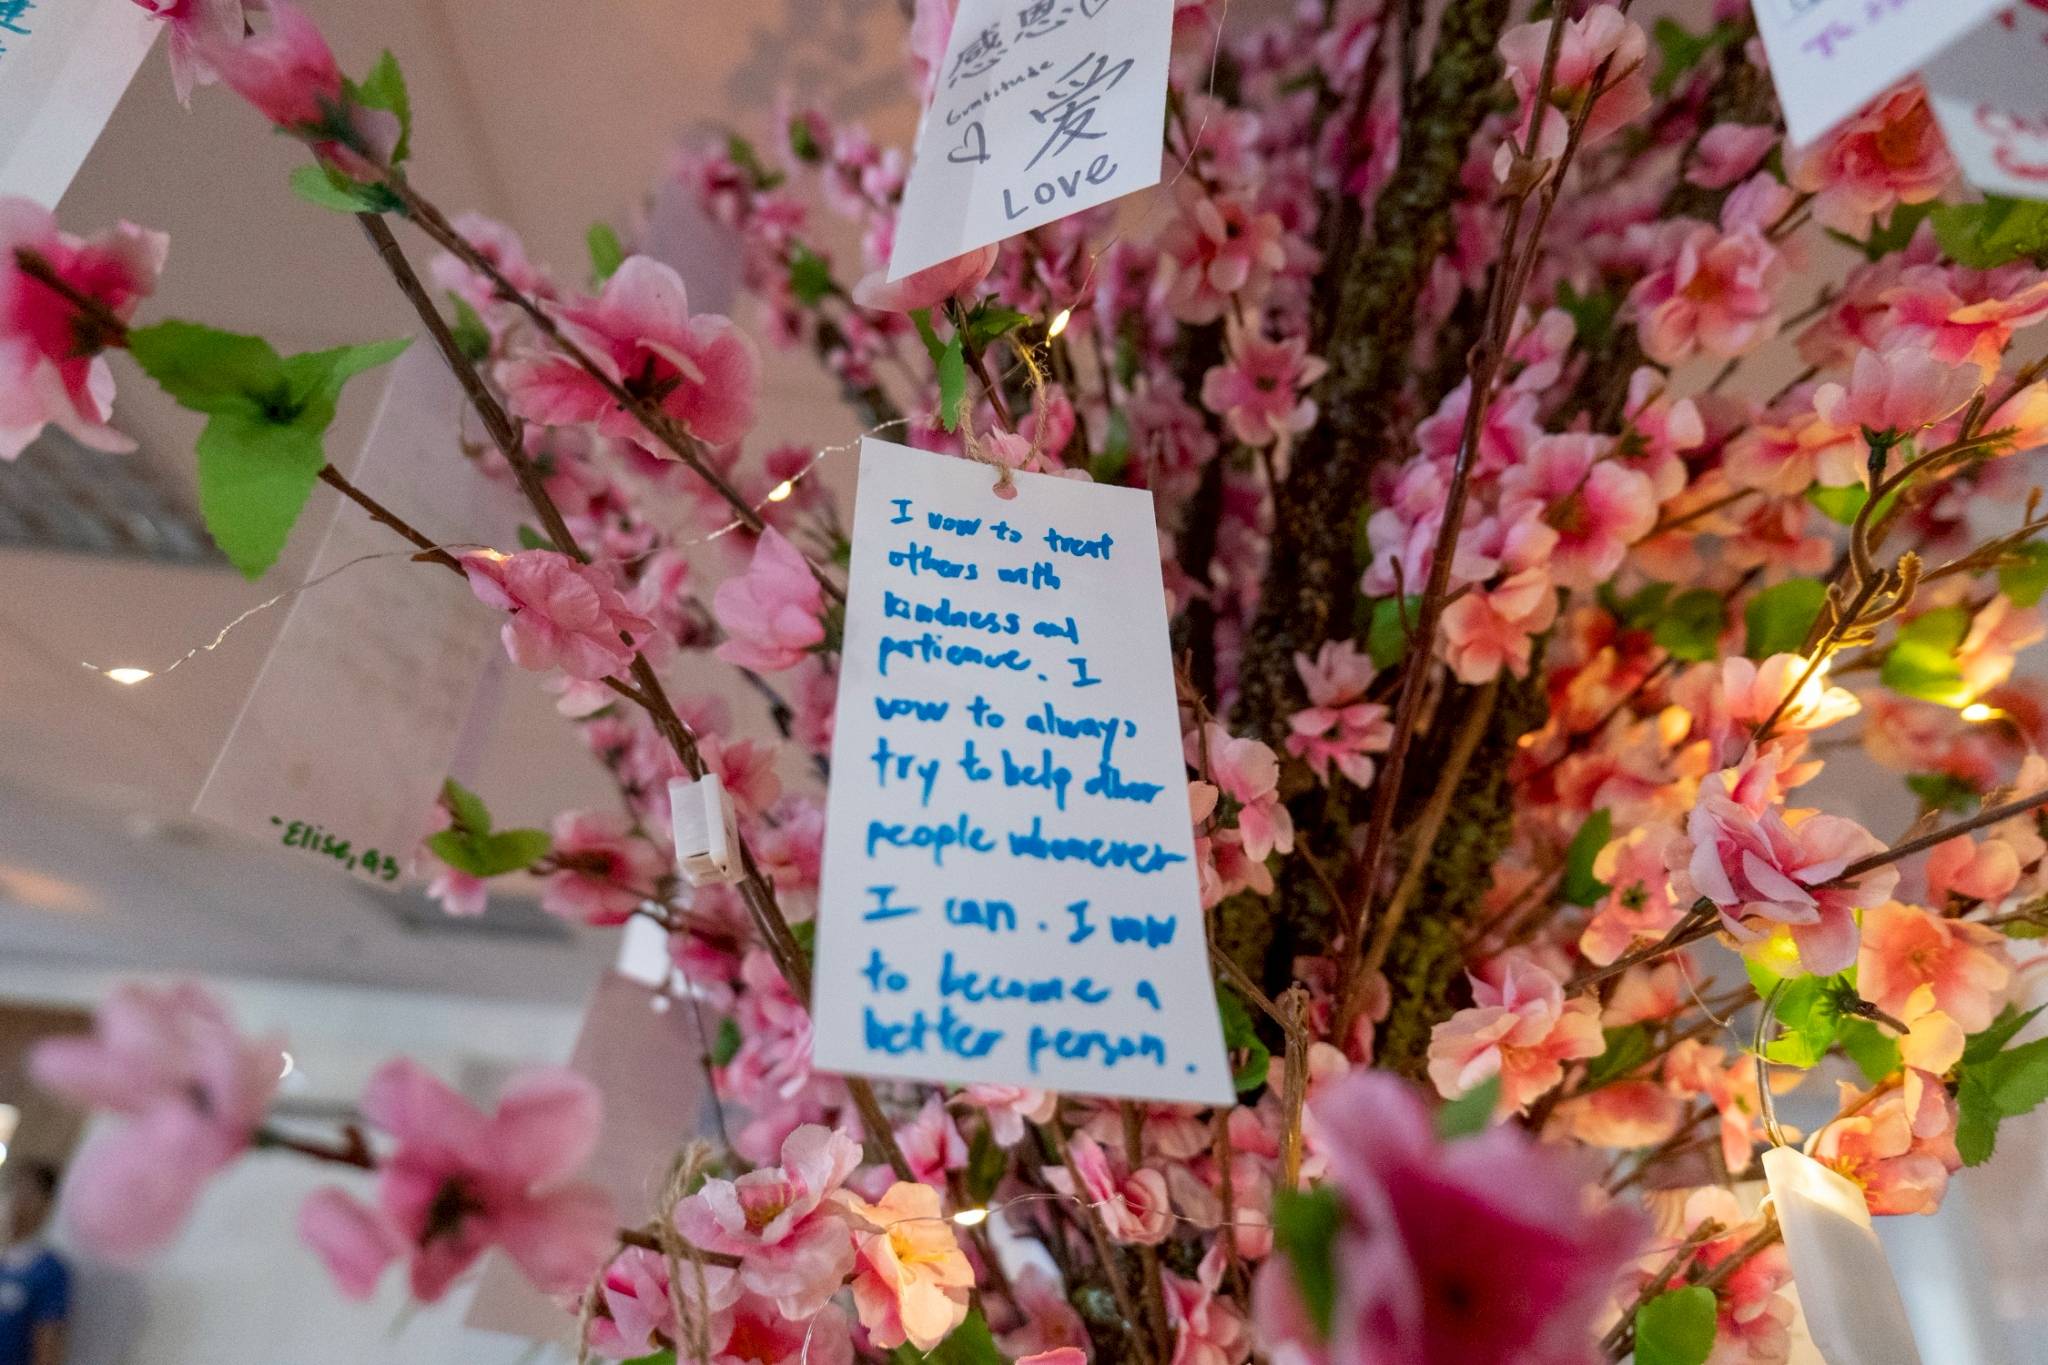 感恩
Gratitude
爱
Love
I vow to treat
others with
kindness and
patience. I
vow to always
try to help other
people whomever
I can. I vow
to become a
better person.
-Elise, G3